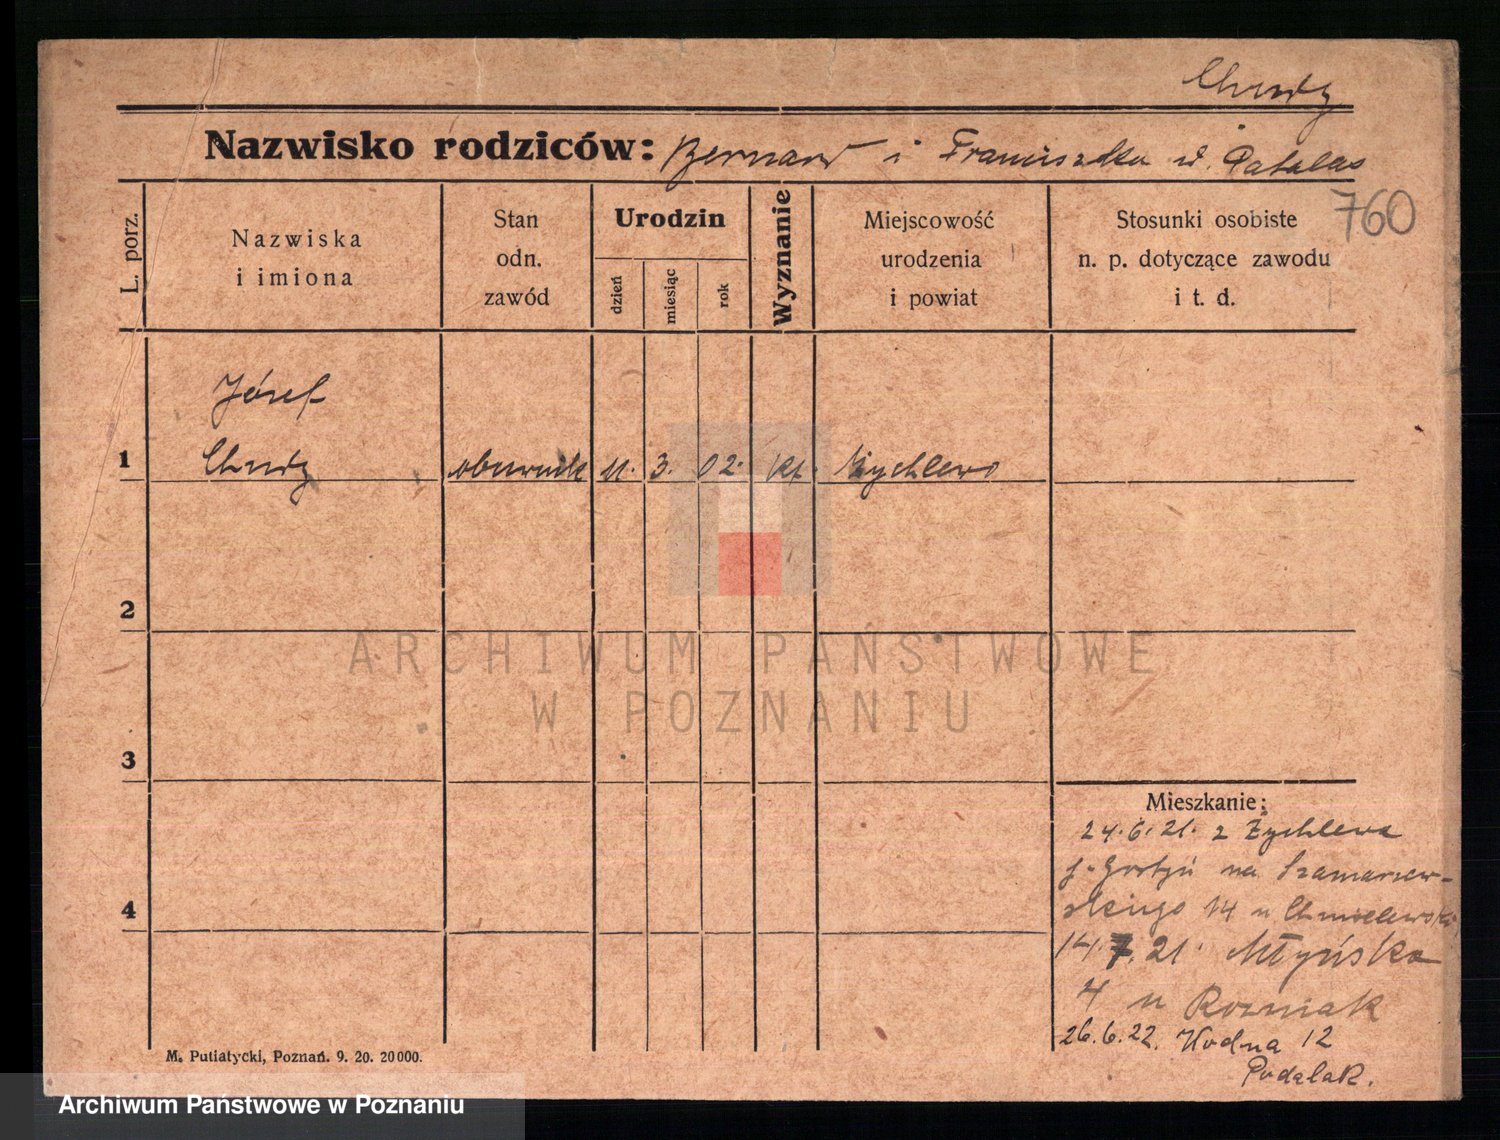 Chudy
Nazwisko rodziców: Bernard i Franciszka z d. Patalas
760
L. porz.
Nazwiska
i imiona
Stan
odn.
zawód
Urodzin
dzień
miesiąc
rok
Wyznanie
Miejscowość
urodzenia
i powiat
Stosunki osobiste
n. p. dotyczące zawodu
i t. d.
Józef
1 Chudy obuwnik 11. 3. 02. kt. Żychlewo
2
3
4
Mieszkanie:
24.6.21. z Żychlewa
p. Gostyń na Szamarzew-
skiego 14 u Chmielewski
14.7.21. Młyńska
4 u Rozniak
26.6.22. Wodna 12
Podelak.
M. Putiatycki, Poznań. 9. 20. 20000.
ARCHIWUM PAŃSTWOWE
W POZNANIU
Archiwum Państwowe w Poznaniu